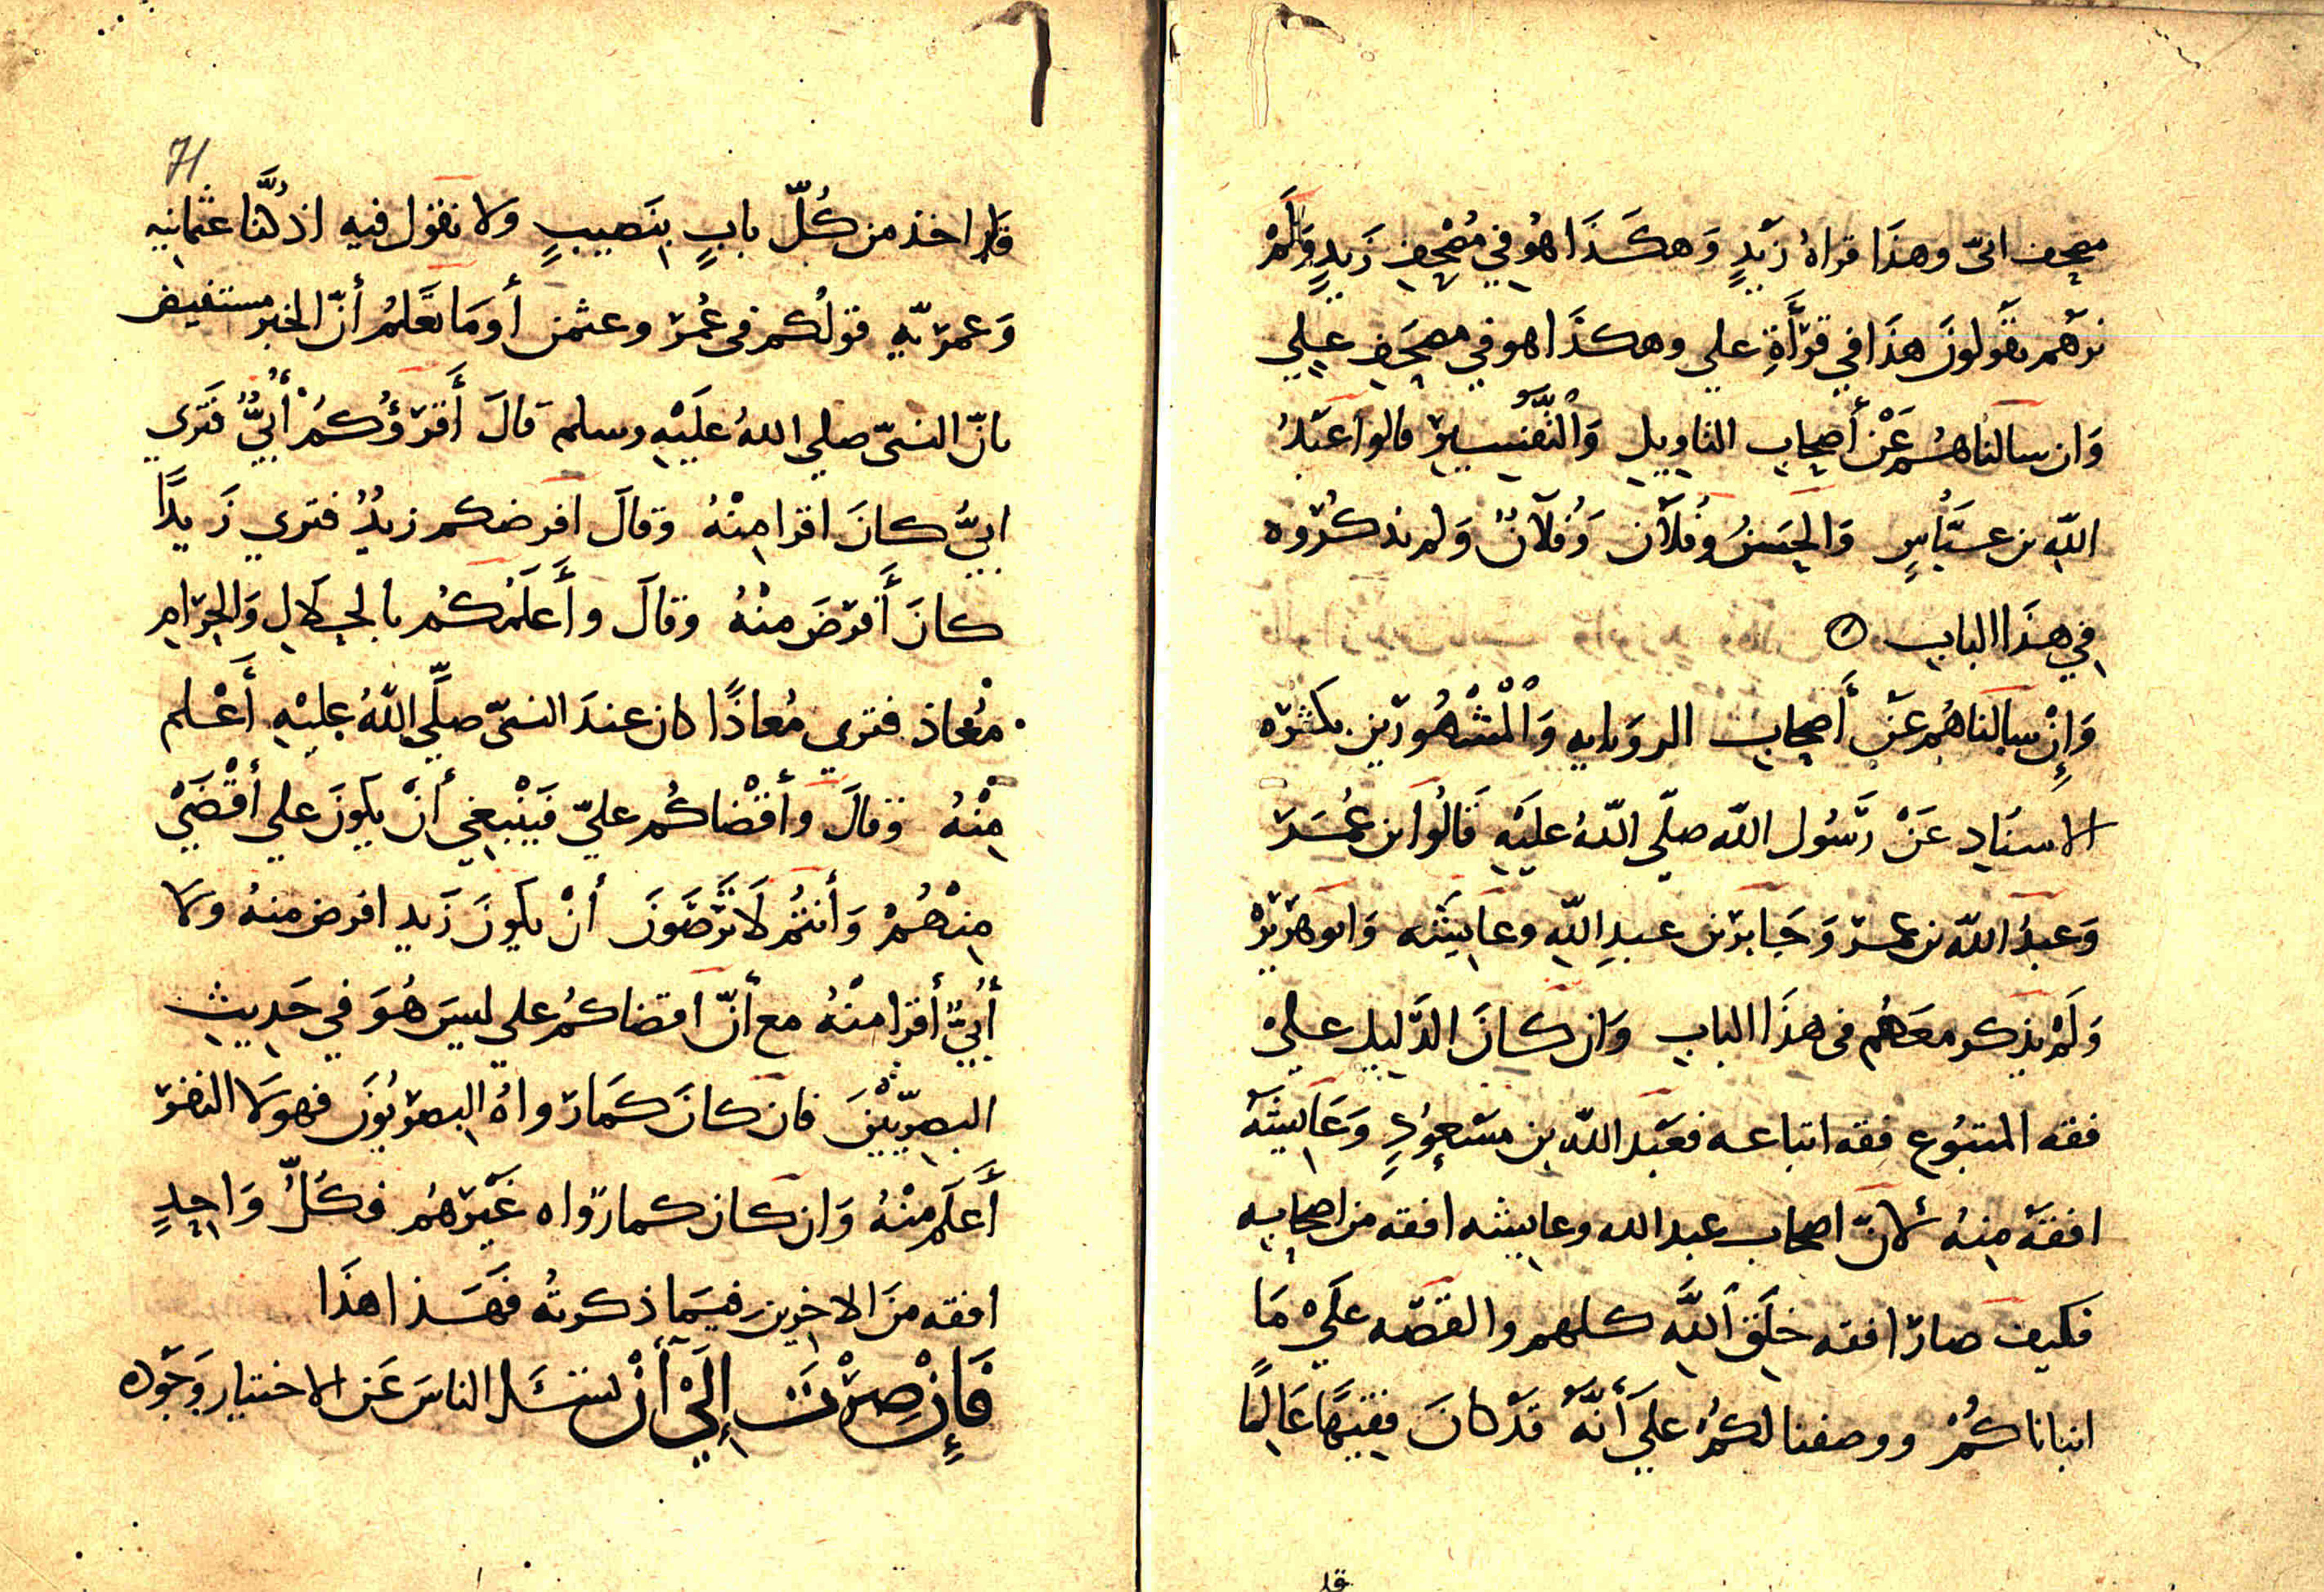 مصحف ابيّ وهذا قراهُ زَيْدٍ وَهكَذَا هُو في مُصْحفِ زَيدٍ وَلَمْ
نرَهم يقَولونَ هذَا في قرَأَةِ علي وهكذَا هو في مصحَفِ عِلي
وَان سالناهُم عَنْ أَصحاب التاويل وَالتَّفسِير قالوا عَبْدُ
اللّه بن عبَّاسٍ وَالحِسَنُ وَفُلَان وَفُلَانٌ وَلم يذكُروه
في هذَا الباب
وَإِنْ سالنَاهُم عَنْ أَصحاب الروَايه وَالْمَشْهُورَين بكثرَه
الاسنَادِ عَنْ رَسُول اللّه صلّى اللّهُ عليَهِ قَالُوا بن عُمَرَ
وَعبدُ اللّه بن عمر وَجَابر بن عبدِ اللّهِ وعَايشَه وَابو هرَيرْ
وَلَمْ يذكر معَهُم في هذَا الباب وَان كانَ الدَّليل عليْ
فقه المتبُوع فقه اتباعه فعَبْد اللّه بن مسْعوُدٍ وَعَايشَة
افقهَ مِنهُ لانّ اصحاب عبد الله وعايشه افقه من اصحابه
فكيف صارَ افقه خلَقِ اللَّهِ كلهم والقصّه علَيْ مَا
انباناكُمْ ووصفنا لكمُ عَلَى أَنَّهُ قدْ كانَ فقيهًا عَالِمًا
قد
71
قَد اخذ من كُلّ بابٍ بِنَصيبٍ ولا نقول فيه اذ كُنَّا عثمانيه
وَعمرَيّه قولُكم في عُمرَ وعثمن أَومَا نعَلمُ أَنّ الخبر مستفيض
بانّ النبيّ صلي اللهُ علَيْهِ وسلم قالَ أَقرَؤُكُمْ أُبيٌّ فَتَرَي
ابيٌّ كانَ اقرا مِنْهُ وقالَ افرضكم زيدٌ فترَي زَيدًا
كانَ أَفرَضَ منْهُ وقالَ وأَعلَمُكُم بالحلَالِ وَالحِرَامِ
مُعْاذ فترَي مُعاذًا كان عندَ النبيّ صلِّي اللّهُ عليْهِ أَعْلم
مِنْهُ وقالَ وأَقْضاكُم عليّ فَيَنْبغِي أَنْ يكونَ علي أقْضَيْ
مِنهُمْ وَأَنتُم لَا تَرْضَونَ أَنْ يكونَ زَيد افرض منهُ ولَا
أُبيٌّ أَقرا منْهُ مع أَنّ اقضاكُم علي ليسَ هُوَ في حَديثِ
البصرِيّيْنَ فان كانَ كمَا رَواهُ البصرَيُونَ فهو لَا النفر
أَعلَم منْهُ وَان كان كما رَواه غيَرَهُم فكُلُّ وَاحِدٍ
افقه منَ الاخِرين فيمَا ذكرتُه فَهَذا هذَا
فَإِنْ صِرْتَ إِلَىْ أَنْ تسَئَل الناسَ عَن الاختيار وَجَوْه